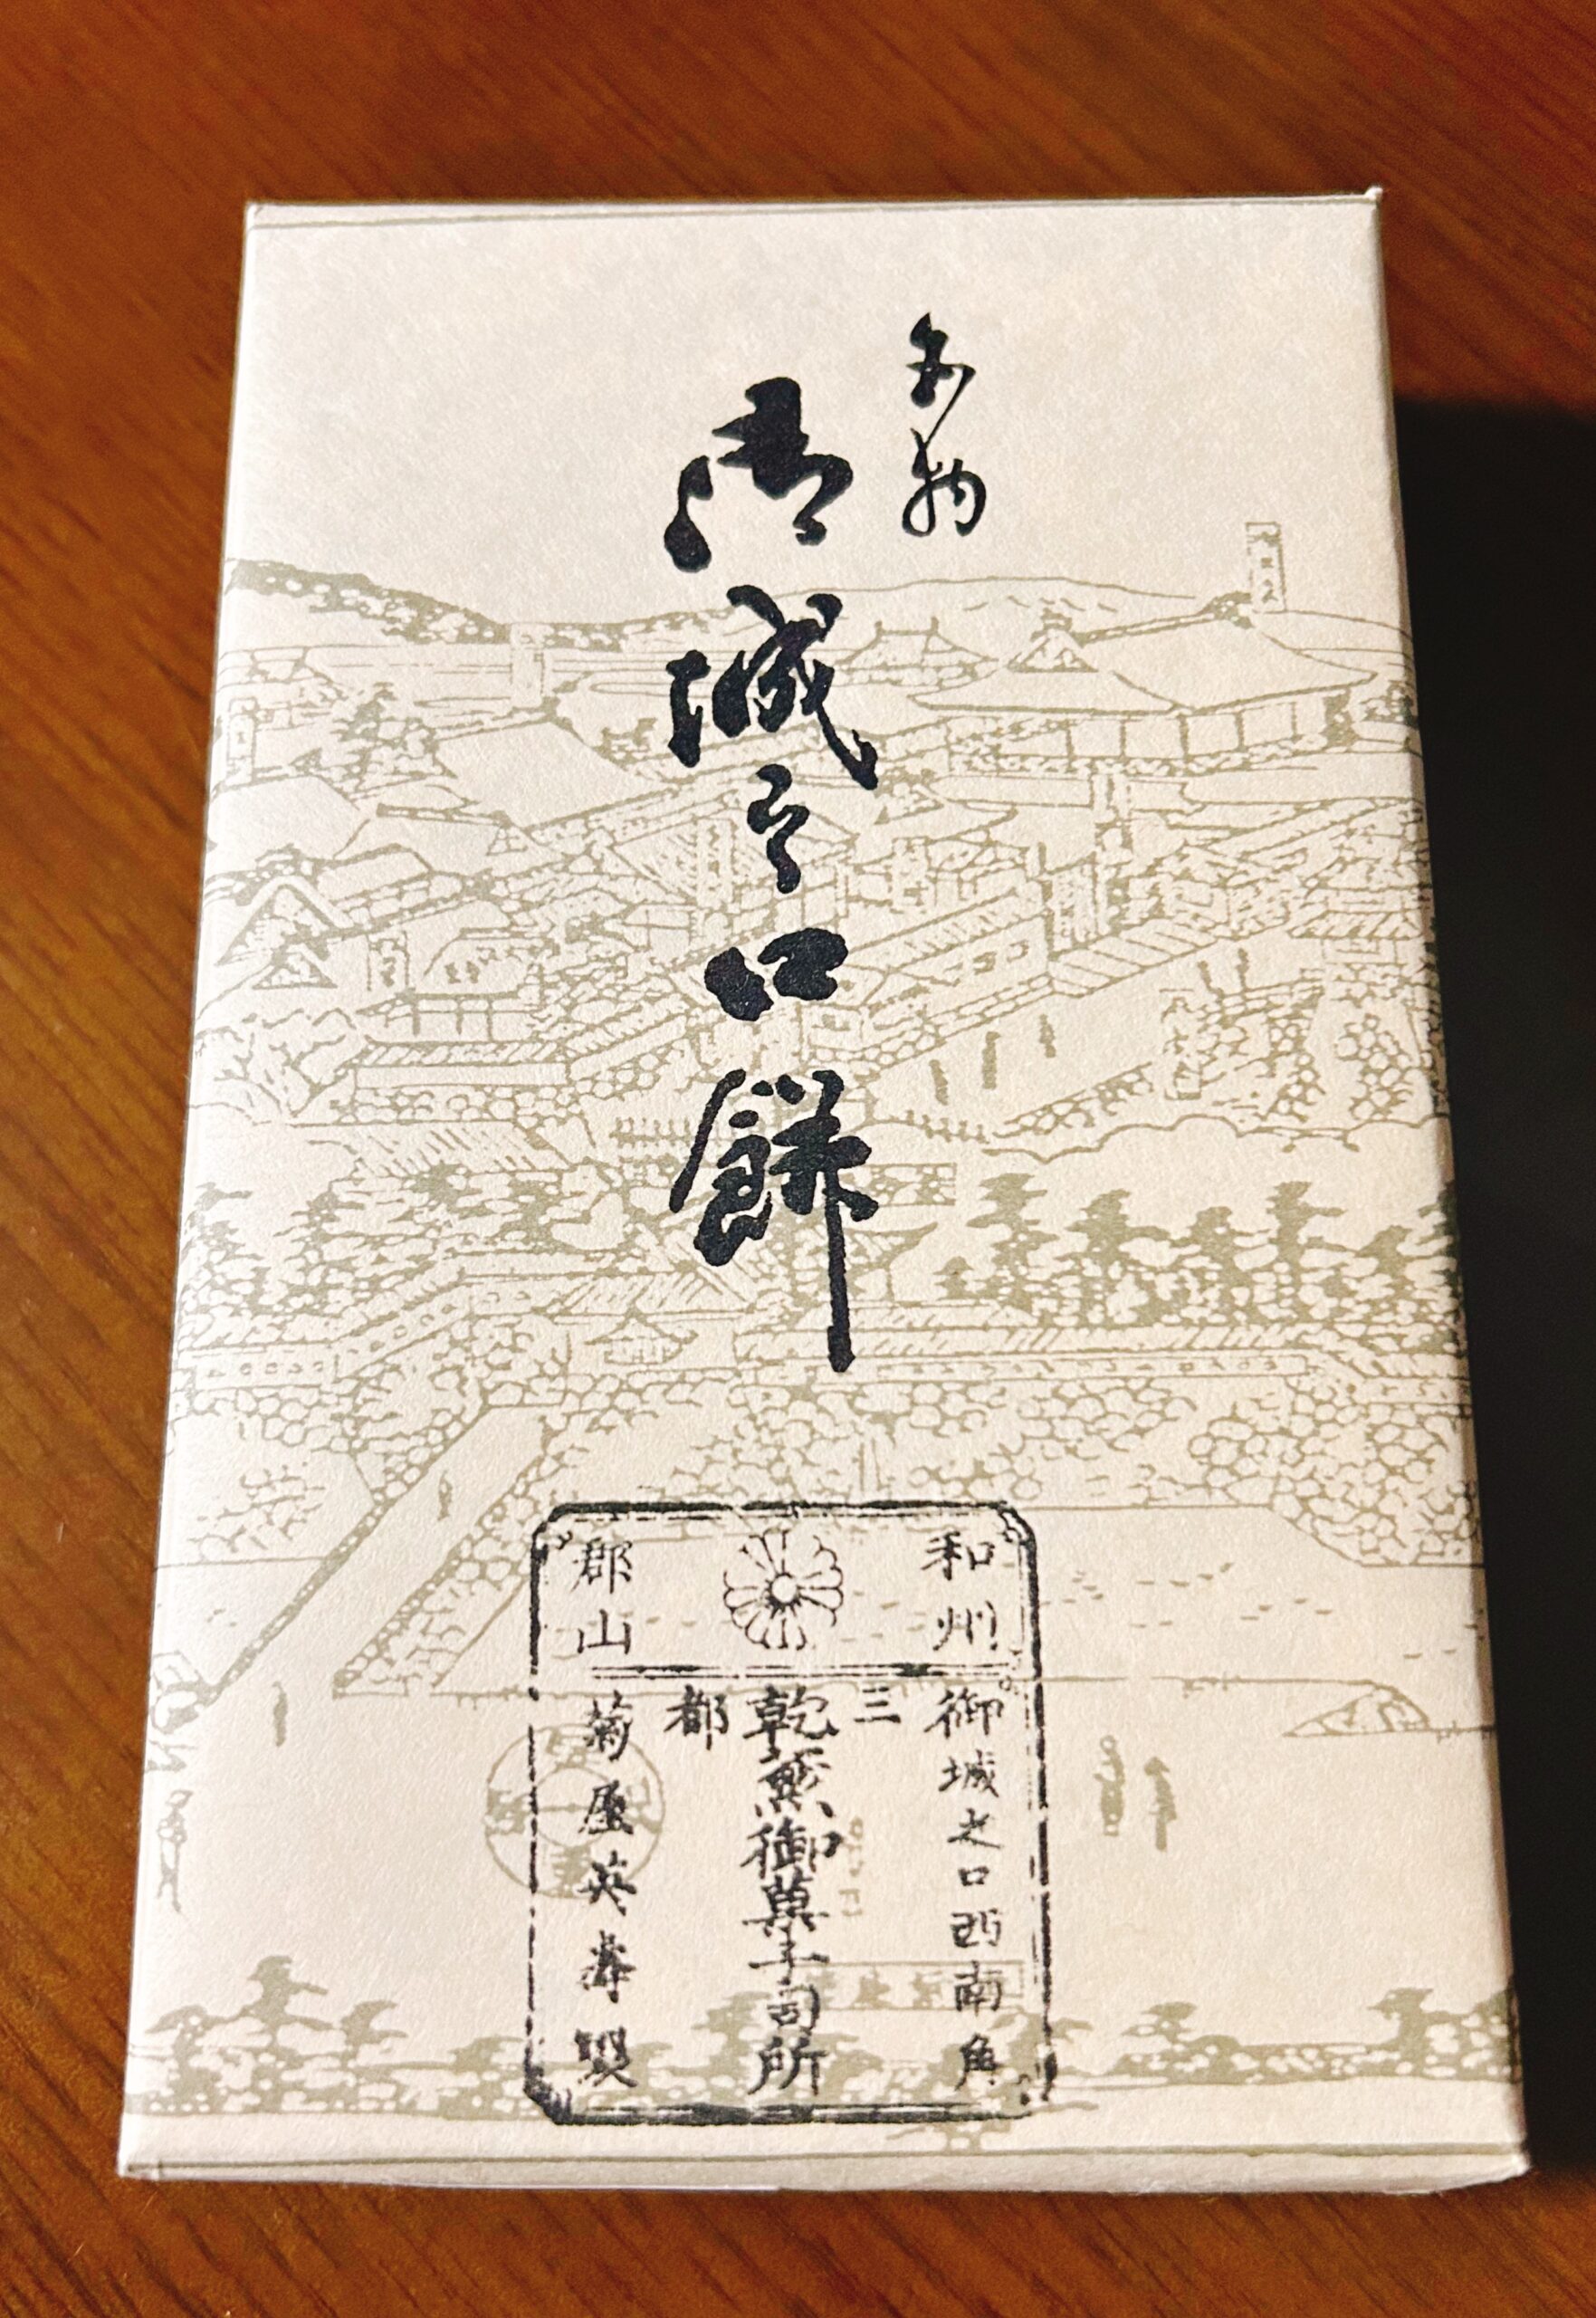 名物
御城之口餅
和州
郡山
御城之口西南角
三都
乾蒸御菓子司所
菊屋英寿製